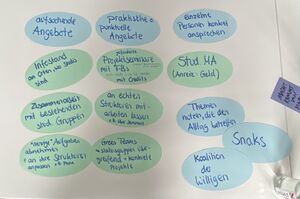 aufsuchende
Angebote
praktische +
punktuelle
Angebote
einzelne
Personen konkret
ansprechen
Infostand
an Orten wo Studis
sind
Projektseminare
mit FBs
mit Credits
Stud. MA
(Anreiz: Geld)
Zusammenarbeit
mit bestehenden
stud. Gruppen
an echten
Strukturen mit-
arbeiten lassen
Themen
nutzen, die den
Alltag betreffen
Snaks
Aufgaben
abnehmen
+ an ihre Strukturen
anpassen
Green Teams
statusgruppenüber-
greifend + konkrete
Projekte
Koalition
der
Willigen